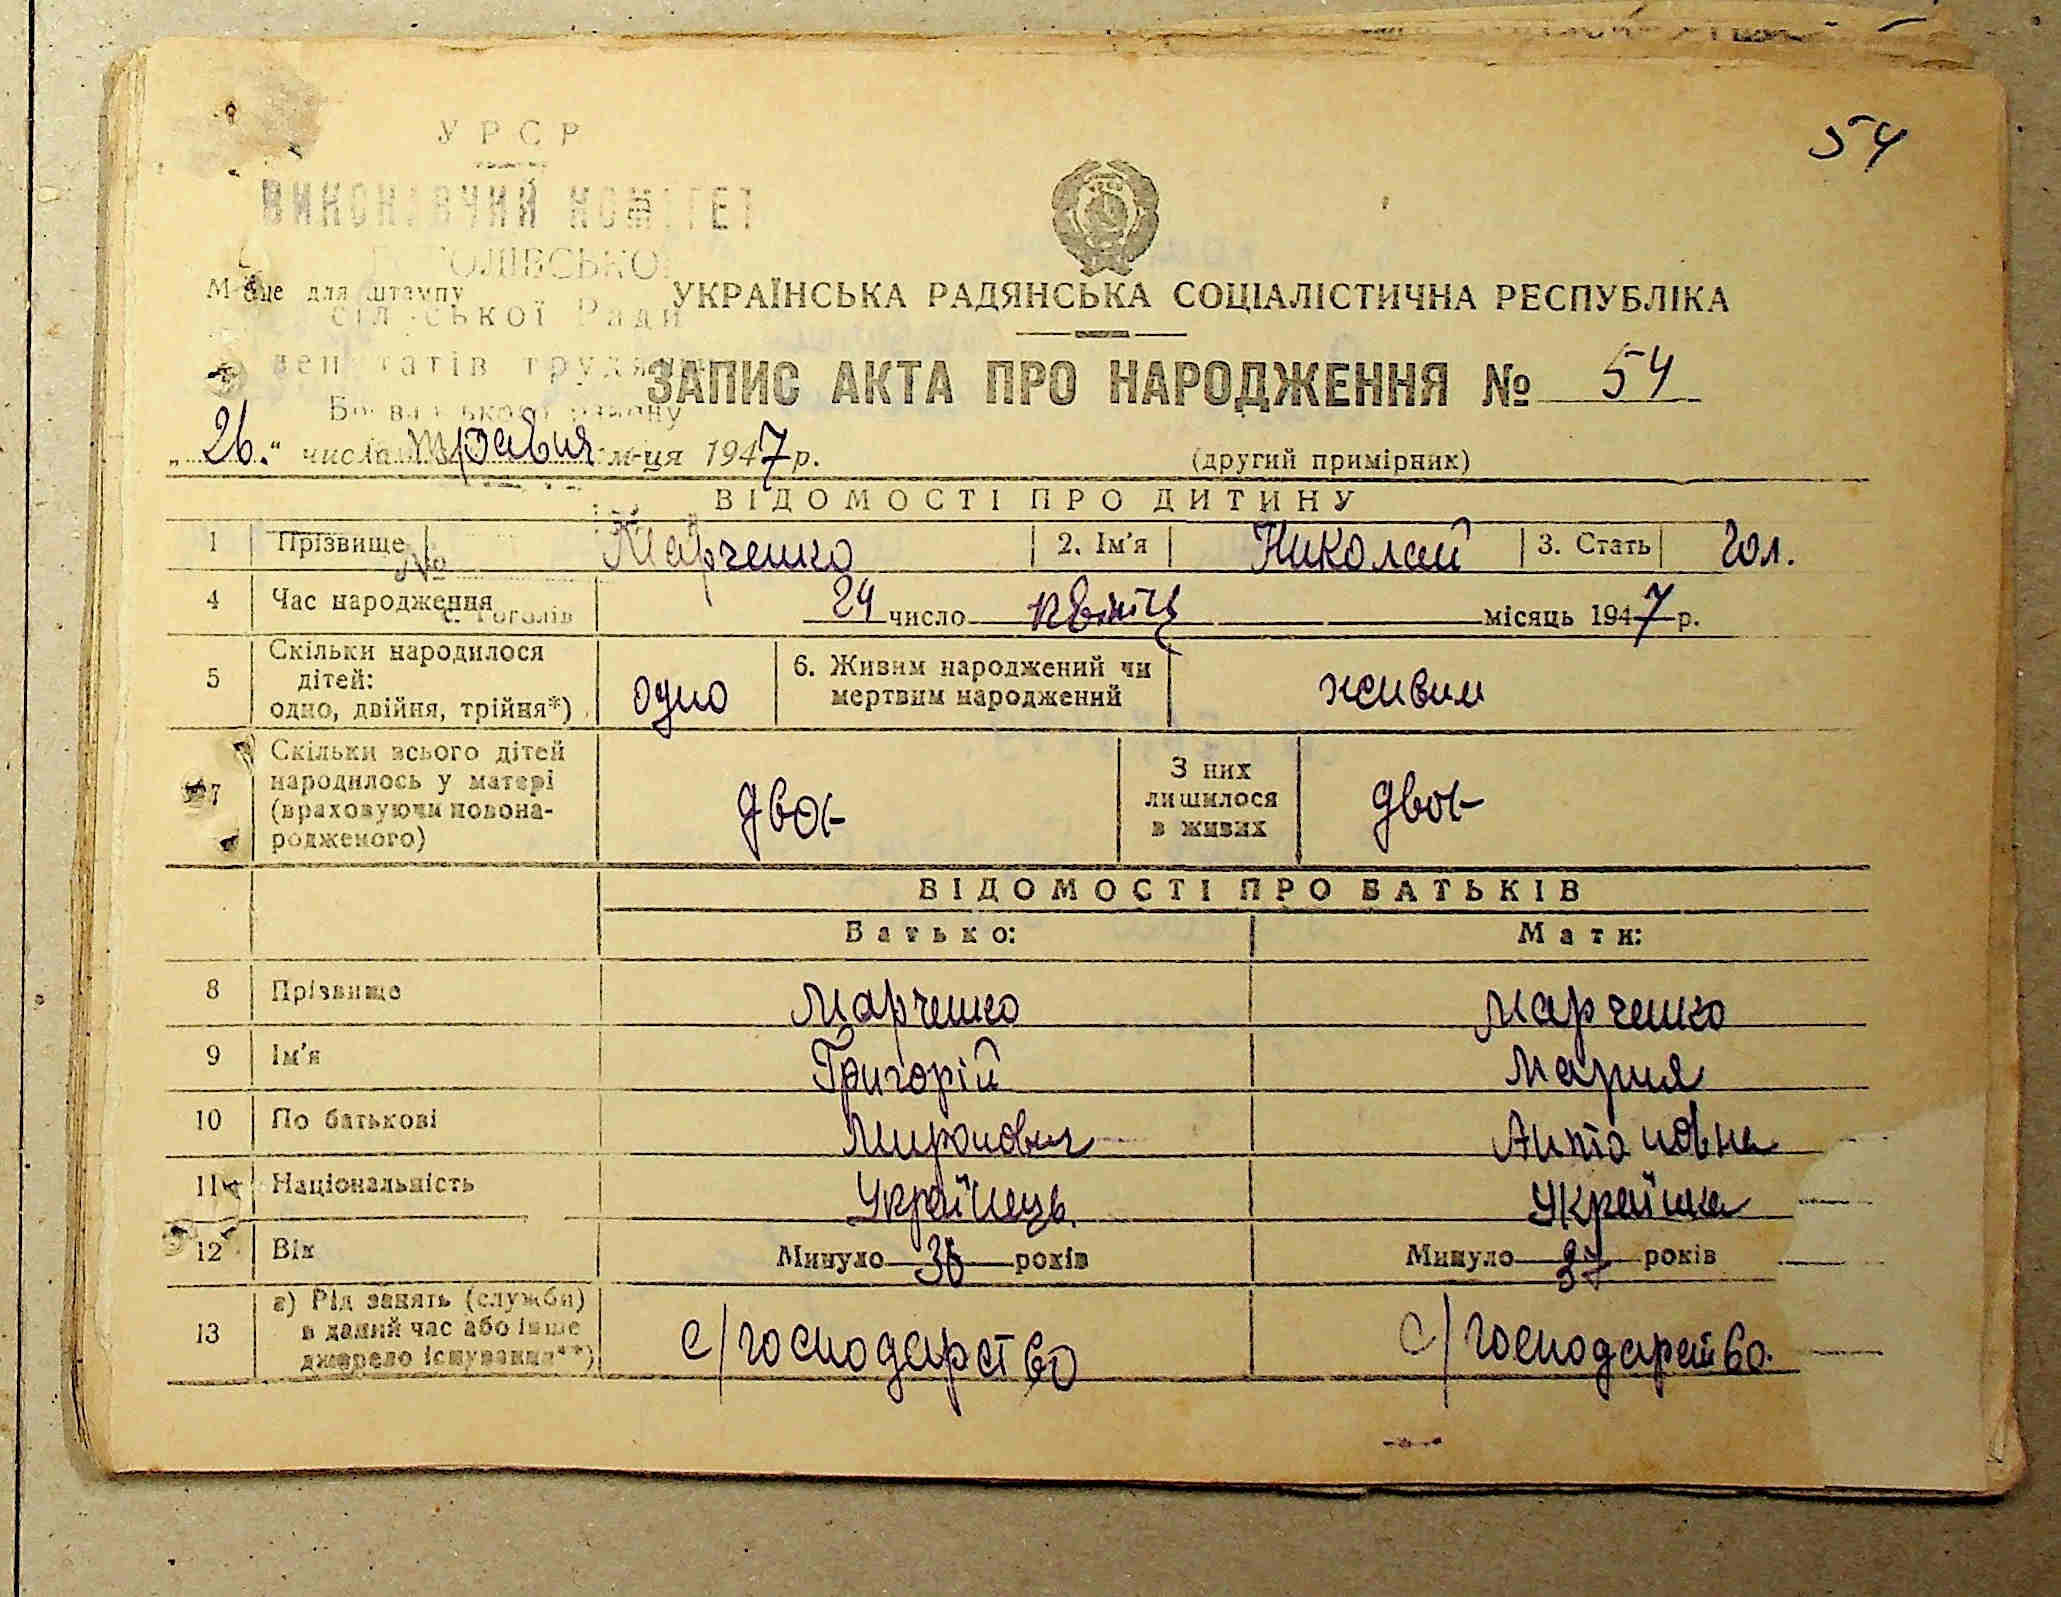 54
УРСР
ВИКОНАВЧИЙ КОМІТЕТ
ГОГОЛІВСЬКОЇ
Місце для штампу
сільської Ради
депутатів трудящих
УКРАЇНСЬКА РАДЯНСЬКА СОЦІАЛІСТИЧНА РЕСПУБЛІКА
ЗАПИС АКТА ПРО НАРОДЖЕННЯ № 54
району
„26.“ числа травня м-ця 1947 р.
(другий примірник)
ВІДОМОСТІ ПРО ДИТИНУ
1 Прізвище Марченко 2. Ім'я Николай 3. Стать чол.
№
4 Час народження 24 число квітц місяць 1947 р.
с. Гоголів
5 Скільки народилося дітей: одно, двійня, трійня*) одно 6. Живим народжений чи мертвим народжений живим
7 Скільки всього дітей народилось у матері (враховуючи новона-родженого) двоє З них лишилося в живих двоє
ВІДОМОСТІ ПРО БАТЬКІВ
Батько: Мати:
8 Прізвище Марченко Марченко
9 Ім'я Григорій Мария
10 По батькові Миронович Антоновна
11 Національність Українець Українка
12 Вік Минуло 36 років Минуло 37 років
13 а) Рід занять (служби) в даний час або інше джерело існування**) с/господарство с/господарство.